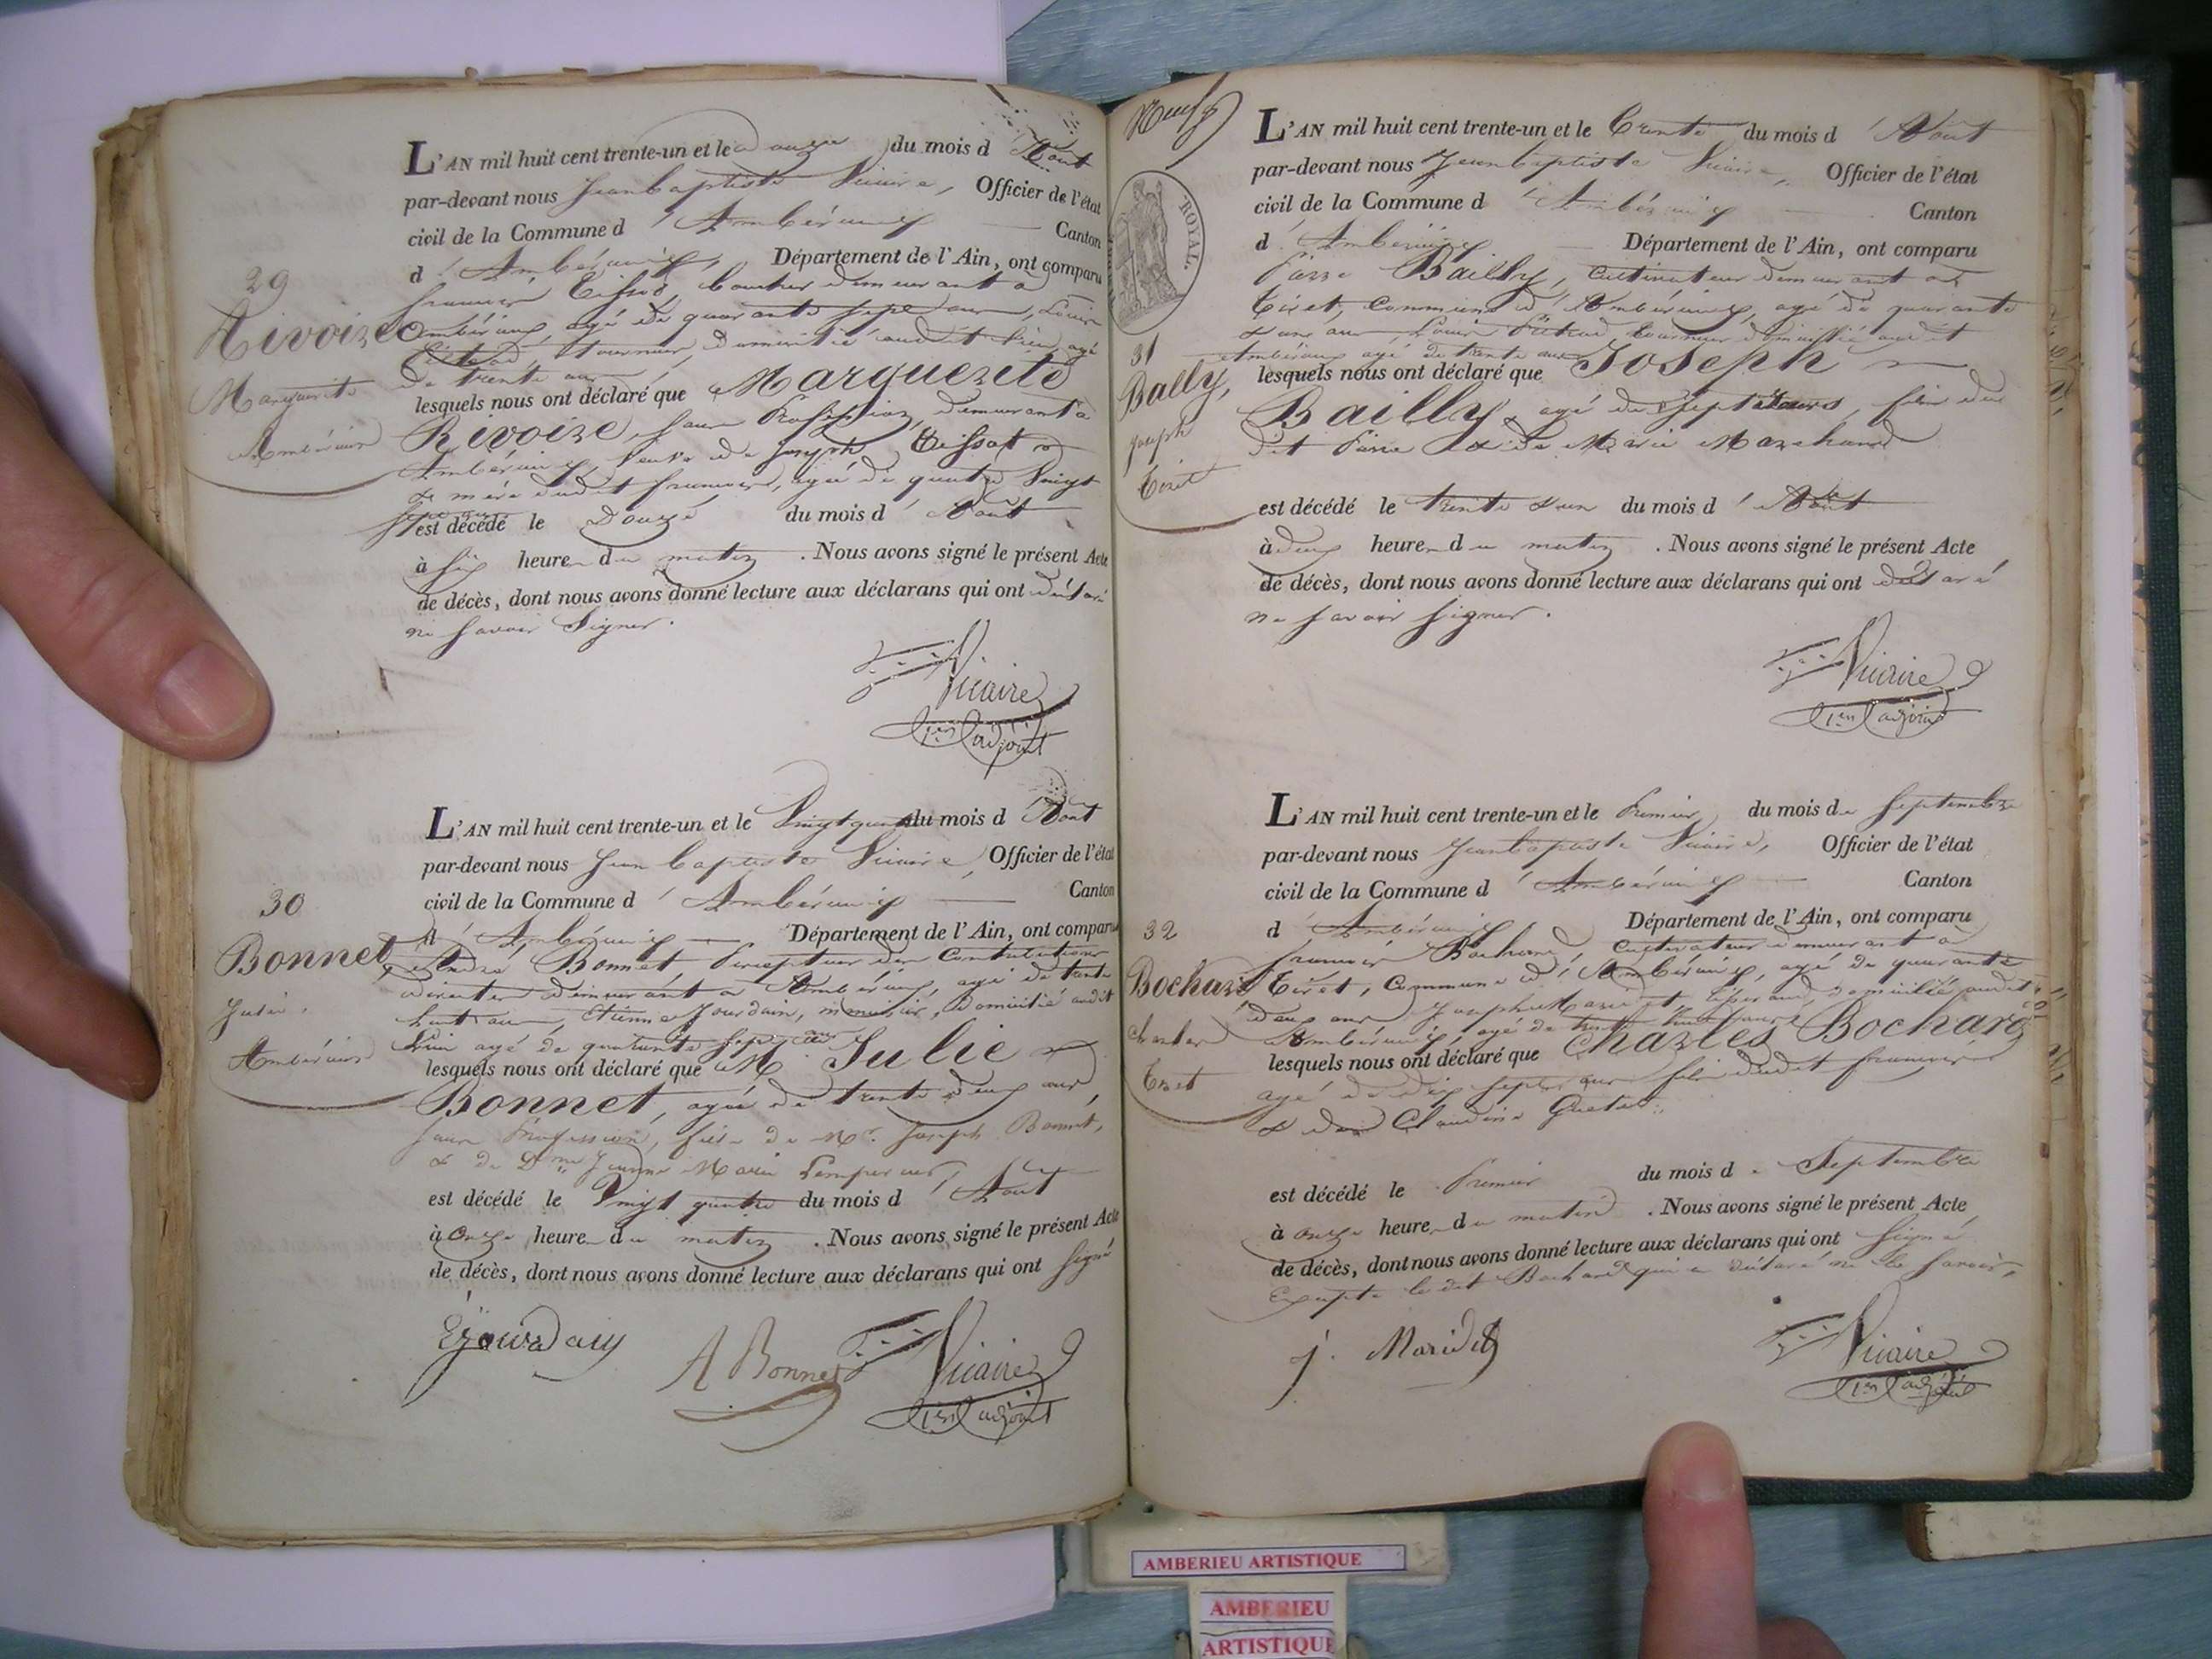 L'AN mil huit cent trente-un et le douze du mois d'Août
par-devant nous Jean Baptiste Vicaire, Officier de l'état
civil de la Commune d'Ambérieux Canton
d'Ambérieux, Département de l'Ain, ont comparu
29
Rivoire
Marguerite
Ambérieux
demeurant à
Ambérieux, agé de quarante sept ans, Louis
tourneur, domicilié audit lieu, agé
de trente ans
lesquels nous ont déclaré que Marguerite
Rivoire, sans Profession, demeurant à
Ambérieux, Veuve de Joseph Tissot
& mère dudit françois, agée de quatre Vingt
est décédé le Douze du mois d'Août
à six heure du matin. Nous avons signé le présent Acte
de décès, dont nous avons donné lecture aux déclarans qui ont déclaré
ne savoir Signer.
Vicaire
1er adjoint
L'AN mil huit cent trente-un et le Vingt quatre du mois d'Août
par-devant nous Jean Baptiste Vicaire, Officier de l'état
civil de la Commune d'Ambérieux Canton
d'Ambérieux Département de l'Ain, ont comparu
30
Bonnet
Julie.
Ambérieux
Bonnet Percepteur des Contributions
directes demeurant à Ambérieux, agé de trente
huit ans, Etienne Jourdain, menuisier, Domicilié audit
lieu agé de quarante sept ans
lesquels nous ont déclaré que Julie
Bonnet, agée de trente deux ans,
sans Profession, fille de Mr. Joseph Bonnet,
& de Dme Jeanne Marie
est décédé le Vingt quatre du mois d'Août
à onze heure du matin. Nous avons signé le présent Acte
de décès, dont nous avons donné lecture aux déclarans qui ont signé
EJourdain
A Bonnet
Vicaire
1er adjoint
Neuf
ROYAL.
L'AN mil huit cent trente-un et le Trente du mois d'Août
par-devant nous Jean Baptiste Vicaire, Officier de l'état
civil de la Commune d'Ambérieux Canton
d'Ambérieux Département de l'Ain, ont comparu
31
Bailly,
Joseph
Tiret
Pierre Bailly, Cultivateur demeurant à
Tiret, Commune d'Ambérieux, agé de quarante
& un ans, Louis tourneur domicilié audit
Ambérieux agé de trente ans
lesquels nous ont déclaré que Joseph
Bailly, agé de Sept fils du
dit Pierre & de Marie Marchand
est décédé le trente & un du mois d'Août
à deux heure du matin. Nous avons signé le présent Acte
de décès, dont nous avons donné lecture aux déclarans qui ont déclaré
ne savoir signer.
Vicaire
1er adjoint
L'AN mil huit cent trente-un et le Premier du mois de Septembre
par-devant nous Jean Baptiste Vicaire, Officier de l'état
civil de la Commune d'Ambérieux Canton
d'Ambérieux Département de l'Ain, ont comparu
32
Bochard
Charles
Tiret
françois Bochard, Cultivateur demeurant à
Tiret, Commune d'Ambérieux, agé de quarante
deux ans, Joseph domicilié audit
Ambérieux, agé de
lesquels nous ont déclaré que Charles Bochard
agé de Dix Sept ans fils dudit françois
& de Claudine
est décédé le Premier du mois de Septembre
à onze heure du matin. Nous avons signé le présent Acte
de décès, dont nous avons donné lecture aux déclarans qui ont signé
Excepté le dit Bochard qui a déclaré ne le savoir,
Vicaire
1er adjoint
AMBERIEU ARTISTIQUE
AMBERIEU
ARTISTIQUE